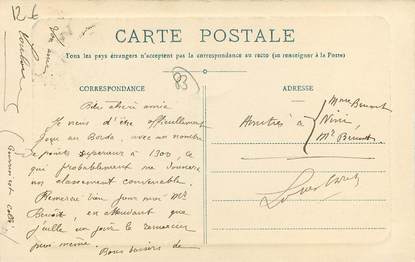 12 €
CARTE POSTALE
Tous les pays étrangers n'acceptent pas la correspondance au recto (se renseigner à la Poste)
CORRESPONDANCE
ADRESSE
Bien chère amie
Je viens d'être officiellement
reçu au Borda, avec un nombre
de points supérieur à 1300, ce
qui probablement me donnera
un classement convenable.
Remercie bien pour moi Mr
Benoît, en attendant que
j'aille un jour le remercier
moi même.
Bons baisers de
ton ami
Amitiés à
Mme Benoit
Ninie
Mr Benoit